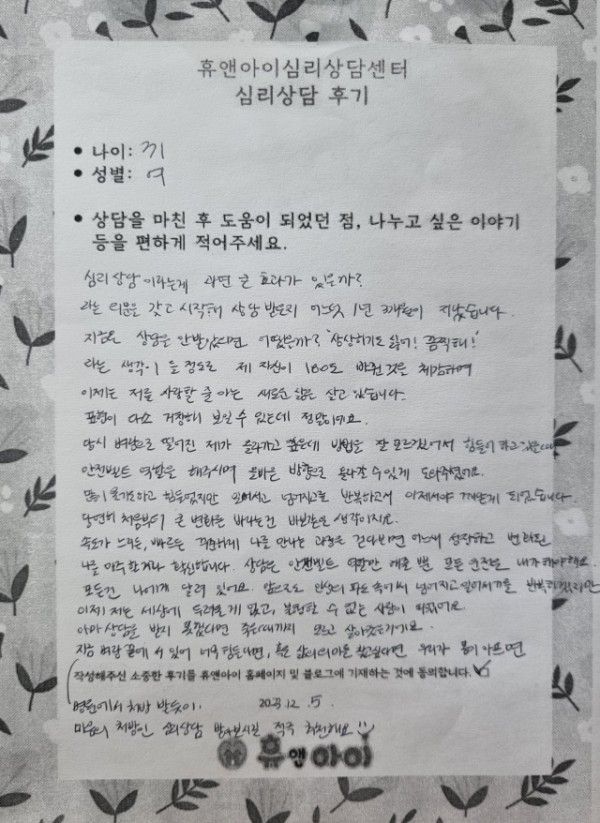 휴앤아이심리상담센터
심리상담 후기
• 나이: 31
• 성별: 여
• 상담을 마친 후 도움이 되었던 점, 나누고 싶은 이야기
등을 편하게 적어주세요.
심리 상담 이라는게 과연 큰 효과가 있을까?
라는 의문을 갖고 시작해 상담 받은지 어느덧 1년 3개월이 지났습니다.
지금은 상담을 안받았다면 어땠을까? '상상하기도 싫어! 끔찍해!'
라는 생각이 들 정도로 제 자신이 180도 바뀐것을 체감하며
이제는 저를 사랑할 줄 아는 새로운 삶을 살고 있습니다.
표현이 다소 거창해 보일 수 있는데 정말이에요.
당시 벼랑으로 떨어진 제가 올라가고 싶은데 방법을 잘 모르겠어서 힘들어 하고 있을때
안전벨트 역할을 해주시며 올바른 방향으로 올라갈 수 있게 도와주셨어요.
하고 힘들었지만 일어서고 넘어지고를 반복하면서 이제서야 깨닫게 되었습니다.
당연히 처음부터 큰 변화를 바라는건 바보같은 생각이지요.
속도가 느리든, 빠르든 꾸준하게 나를 만나는 과정을 걷다보면 어느새 성장하고 변화된
나를 마주할거라 확신합니다. 상담은 안전벨트 역할만 해줄 뿐 모든 운전은 내가 해야해요.
모든건 나에게 달려 있어요. 앞으로도 인생의 파도 속에서 넘어지고 일어서기를 반복하겠지만
이제 저는 세상에 두려울게 없고, 불행할 수 없는 사람이 되었어요.
아마 상담을 받지 못했다면 죽을때까지 모르고 살아갔을거에요.
지금 벼랑 끝에 서 있어 너무 힘들다면, 혹은 삶의 의미를 찾고싶다면 우리가 몸이 아프면
작성해주신 소중한 후기를 휴앤아이 홈페이지 및 블로그에 기재하는 것에 동의합니다.
병원에서 처방 받듯이. 2023.12.5.
마음의 처방인 심리상담 받아보시길 적극 추천해요 :)
휴앤아이